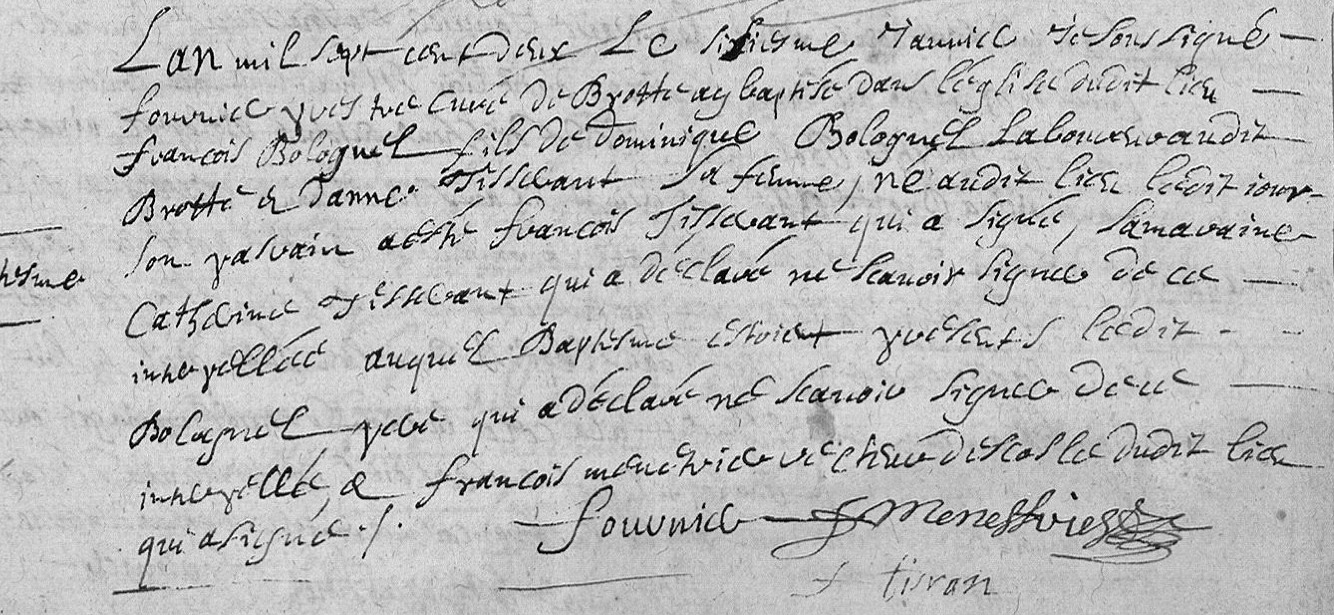 Lan mil sept cent deux Le siziesme Janvier Je soussigné
fournier prestre Curé de Brotte ay baptisé dans léglise dudit lieu
françois Bolognel fils de Dominique Bolognel Laboureur audit
Brotte et danne Tisserant sa femme, né audit lieu ledit jour
son parain a esté françois Tisserant qui a signé, sa maraine
Catherine Tisserant qui a déclaré ne scavoir signer de ce
interpellée auquel Baptesme estoient presents ledit
Bolognel pere qui a déclaré ne scavoir signer de ce
interpellé, et françois menetrier recteur descole dudit lieu
qui a signé ./.
fournier f Menestrier
f tisran